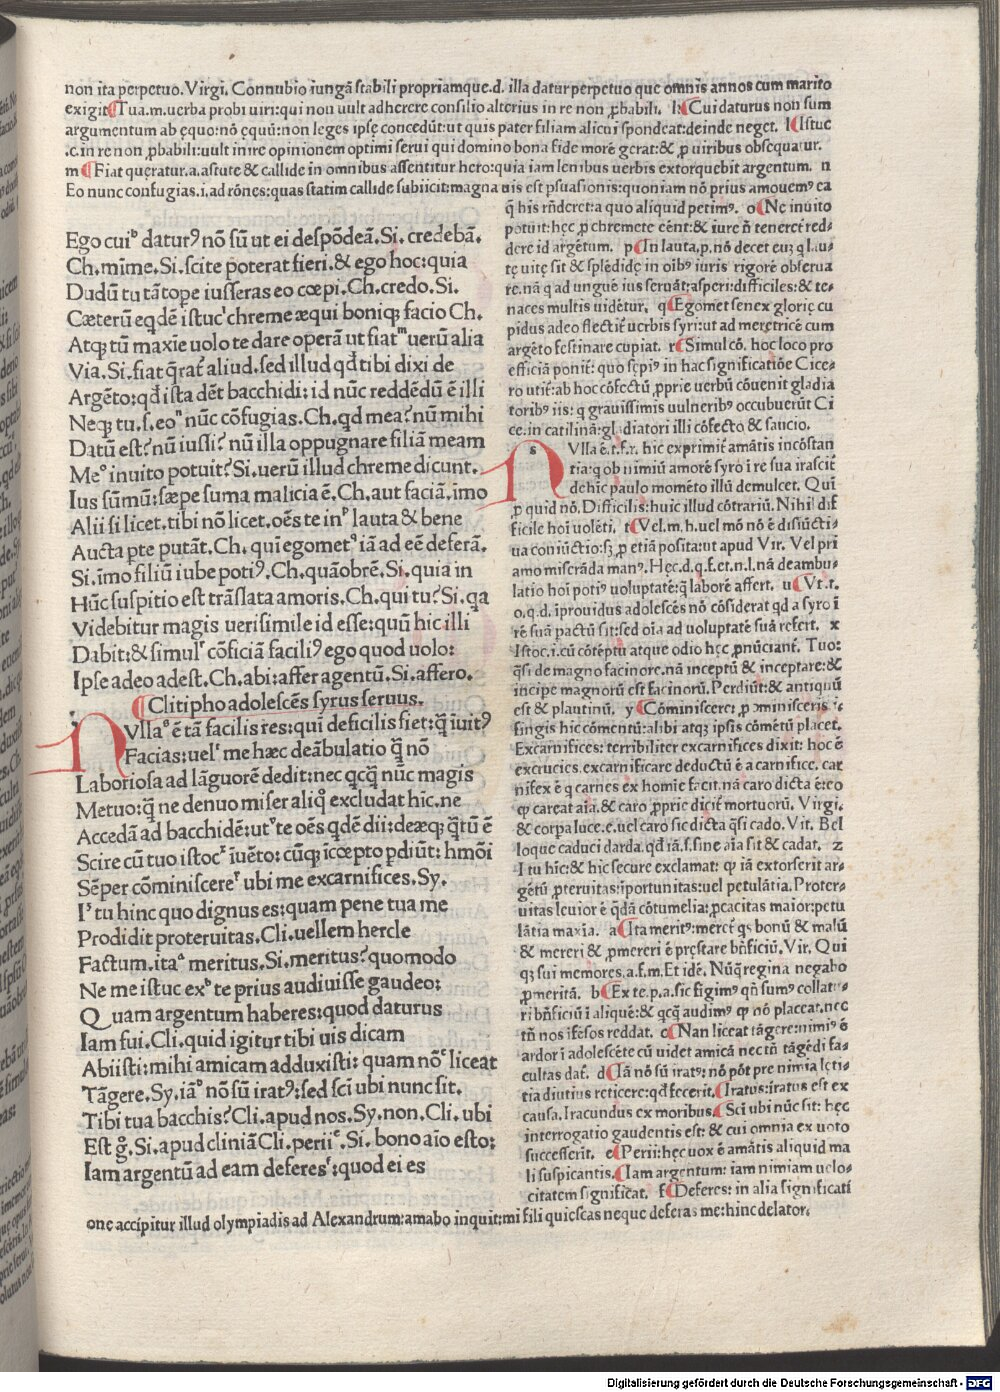 non ita perpetuo.Virgi. Connubio iungā stabili propriamque.d. illa datur perpetuo que omnis annos cum marito
exigit Tua.m.uerba probi uiri:qui non uult adherere consilio alterius in re non ꝓbabili. l Cui daturus non sum
argumentum ab ęquo:nō ęquū:non leges ipsę concedūt:ut quis pater filiam alicui spondeat:deinde neget. l Istuc
.c.in re non ꝓbabili:uult in ire opinionem optimi serui qui domino bona fide morē gerat:& ꝓ uiribus obsequatur.
m Fiat quęratur.a.astute & callide in omnibus assentitur hero:quia iam lenibus uerbis extorquebit argentum. n
Eo nunc confugias.i.ad rōnes:quas statim callide subiicit:magna uis est ꝑsuasionis:quoniam nō prius amouemꝰ ea
Ego cuiᵇ daturꝰ nō sū ut ei despōdeā.Si. credebā.
Ch.mīme.Si.scite poterat fieri.& ego hoc:quia
Dudū tu tātope iusseras eo cœpi.Ch.credo.Si.
Cæterū eqdē istucᶦ chreme æqui boniqꝫ facio Ch.
Atqꝫ tū maxīe uolo te dare operā ut fiatᵐ uerū alia
Via.Si.fiat q̄rat aliud.sed illud qd̄ tibi dixi de
Argēto:qd̄ ista dēt bacchidi:id nūc reddēdū ē illi
Neqꝫ tu.s.eoⁿ nūc cōfugias.Ch.qd̄ mea? nū mihi
Datū est? nū iussi? nū illa oppugnare filiā meam
Meᵒ inuito potuit? Si.uerū illud chreme dicunt.
Ius sūmū:sæpe suma malicia ē.Ch.aut faciā.imo
Alii si licet.tibi nō licet.oēs te inᵖ lauta & bene
Aucta pte putāt.Ch. qui egometꝗ iā ad eē deferā.
Si.īmo filiū iube potiꝰ.Ch.quāobrē.Si.quia in
Hūc suspitio est trāslata amoris.Ch.qui tu? Si.qa
Videbitur magis uerisimile id esse:quū hic illi
Dabit:& simulʳ cōficiā faciliꝰ ego quod uolo:
Ipse adeo adest.Ch.abi:affer agentū.Si.affero.
Clitipho adolescēs syrus seruus.
NVllaˢ ē tā facilis res:qui deficilis siet:q̄ īuitꝰ
Facias:uelᵗ me hæc deābulatio q̄ nō
Laboriosa ad lāguorē dedit:nec qcq̄ nūc magis
Metuo:q̄ ne denuo miser aliq̄ excludat hīc.ne
Accedā ad bacchidē:utᵛ te oēs qdē dii:deæqꝫ q̄tū ē
Scire cū tuo istocˣ īuēto:cūqꝫ īcœpto pdiūt:hmōi
Sēper cōminiscereʸ ubi me excarnifices.Sy.
Iᶻ tu hinc quo dignus es:quam pene tua me
Prodidit proteruitas.Cli.uellem hercle
Factum.itaᵃ meritus.Si.meritus? quomodo
Ne me istuc exᵇ te prius audiuisse gaudeo:
Quam argentum haberes:quod daturus
Iam fui.Cli.quid igitur tibi uis dicam
Abiisti:mihi amicam adduxisti:quam nōᶜ liceat
Tāgere.Sy.iāᵈ nō sū iratꝰ:sed sci ubi nunc sit.
Tibi tua bacchis? Cli.apud nos.Sy.non.Cli.ubi
Est g̊.Si.apud cliniā Cli.periiᵉ.Si.bono aīo esto:
Iam argentū ad eam deferesᶠ:quod ei es
q̄ his rn̄deret:a quo aliquid petimꝰ. o Ne inuito
potuit:hęc ꝓ chremete cēnt:& iure n̄ teneret red-
dere id argētum. p In lauta.p.nō decet euꝫ q̄ lau-
tę uitę sit & splēdidę in oībꝰ iuris rigorē obserua
re.nā q̄ ad unguē ius seruāt:asperi:difficiles:& te-
naces multis uidētur. q Egomet senex glorię cu
pidus adeo flectit uerbis syri:ut ad meretricē cum
argēto festinare cupiat. r Simul cō. hoc loco pro
efficiā ponit: quo sępiꝰ in hac significatiōe Cice-
ro utit:ab hoc cōfectū ꝓprie uerbū cōuenit gladia
toribꝰ iis: q grauissimis uulneribꝰ occubuerūt Ci
ce.in catilinā:gladiatori illi cōfecto & saucio.
s NVlla ē.t.f.r. hic exprimit amātis incōstan
tia:q ob nimiū amorē syro ī re sua irascit
dehīc paulo momēto illū demulcet. Qui
ꝓ quid nō. Difficilis:huic illud cōtrariū. Nihil dif
ficile hoī uolēti. t Vel.m.h.uel mō nō ē disiūcti-
ua coniūctio:sꝫ ꝓ etiā posita:ut apud Vir. Vel pri
amo miserāda manꝰ. Hęc.d.q.f.et.n.l.nā deambu-
latio hoī potiꝰ uoluptatē:q̄ laborē affert. u Vt.t.
o.q.d. īprouidus adolescēs nō cōsiderat qd a syro ī
rē suā pactū sit:sed oīa ad uoluptatē suā refert. x
Istoc.i.cū cōtēptu atque odio hęc ꝓnūciant. Tuo:
q̄si de magno facinore.nā inceptū & inceptare:&
incipe magnorū est facinorū. Perdiūt:& antiquū
est & plautinū. y Cōminiscere: ꝓ cominisceris
fingis hic cōmentū:alibi atqꝫ ipsis cōmētū placet.
Excarnifices: terribiliter excarnifices dixit: hoc ē
excrucies.excarnificare deductū ē a carnifice. car
nifex ē q carnes ex homie facit.nā caro dicta ē:eo
ꝙ careat aīa.& caro ꝓprie dicit mortuorū. Virgi.
& corpa luce.c.uel caro sic dicta q̄si cado. Vir. Bel
loque caduci darda.qd īā.f.sine aīa sit & cadat. z
I tu hīc:& hic secure exclamat: ꝙ iā extorserit ar-
gētū ꝓteruitas:īportunitas:uel petulātia. Proter-
uitas leuior ē qdā cōtumelia: ꝓcacitas maior:petu
lātia maxīa. a Ita meritꝰ:meret qs bonū & malū
& mereri & ꝓmereri ē pręstare bn̄ficiū. Vir. Qui
qꝫ sui memores.a.f.m. Et idē. Nūq̄ regina negabo
ꝓmeritā. b Ex te.p.a.sic figimꝰ qn̄ sumꝰ collatu-
ri bn̄ficiū ī aliquē:& qcq̄ audimꝰ ꝙ nō placeat.nec
tn̄ nos īfesos reddat. c Nan liceat tāgere:nimiꝰ ē
ardor ī adolescēte cū uidet amicā nec tn̄ tāgēdi fa-
cultas dat. d Iā nō sū iratꝰ:nō pōt pre nimia lęti-
tia diutius reticere:qd fecerit. Iratus:iratus est ex
causa.Iracundus ex moribus. Sci ubi nūc sit: hęc
interrogatio gaudentis est: & cui omnia ex uoto
successerit. e Perii:hęc uox ē amātis aliquid ma
li suspicantis. Iam argentum: iam nimiam uelo-
citatem significat. f Deferes: in alia significati
one accipitur illud olympiadis ad Alexandrum:amabo inquit:mi fili quiescas neque deferas me:hinc delator.
Digitalisierung gefördert durch die Deutsche Forschungsgemeinschaft - DFG